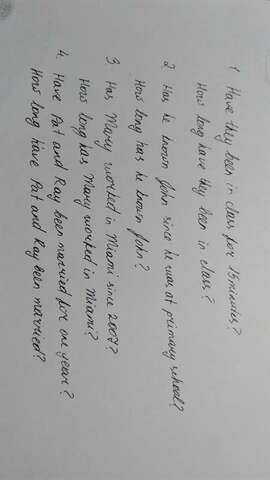 1 Have they been in class for 15 minutes?
How long have they been in class?
2 Has he known John since he was at primary school?
How long has he known John?
3 Has Mary worked in Miami since 2007?
How long has Mary worked in Miami?
4. Have Pat and Ray been married for one year?
How long have Pat and Ray been married?